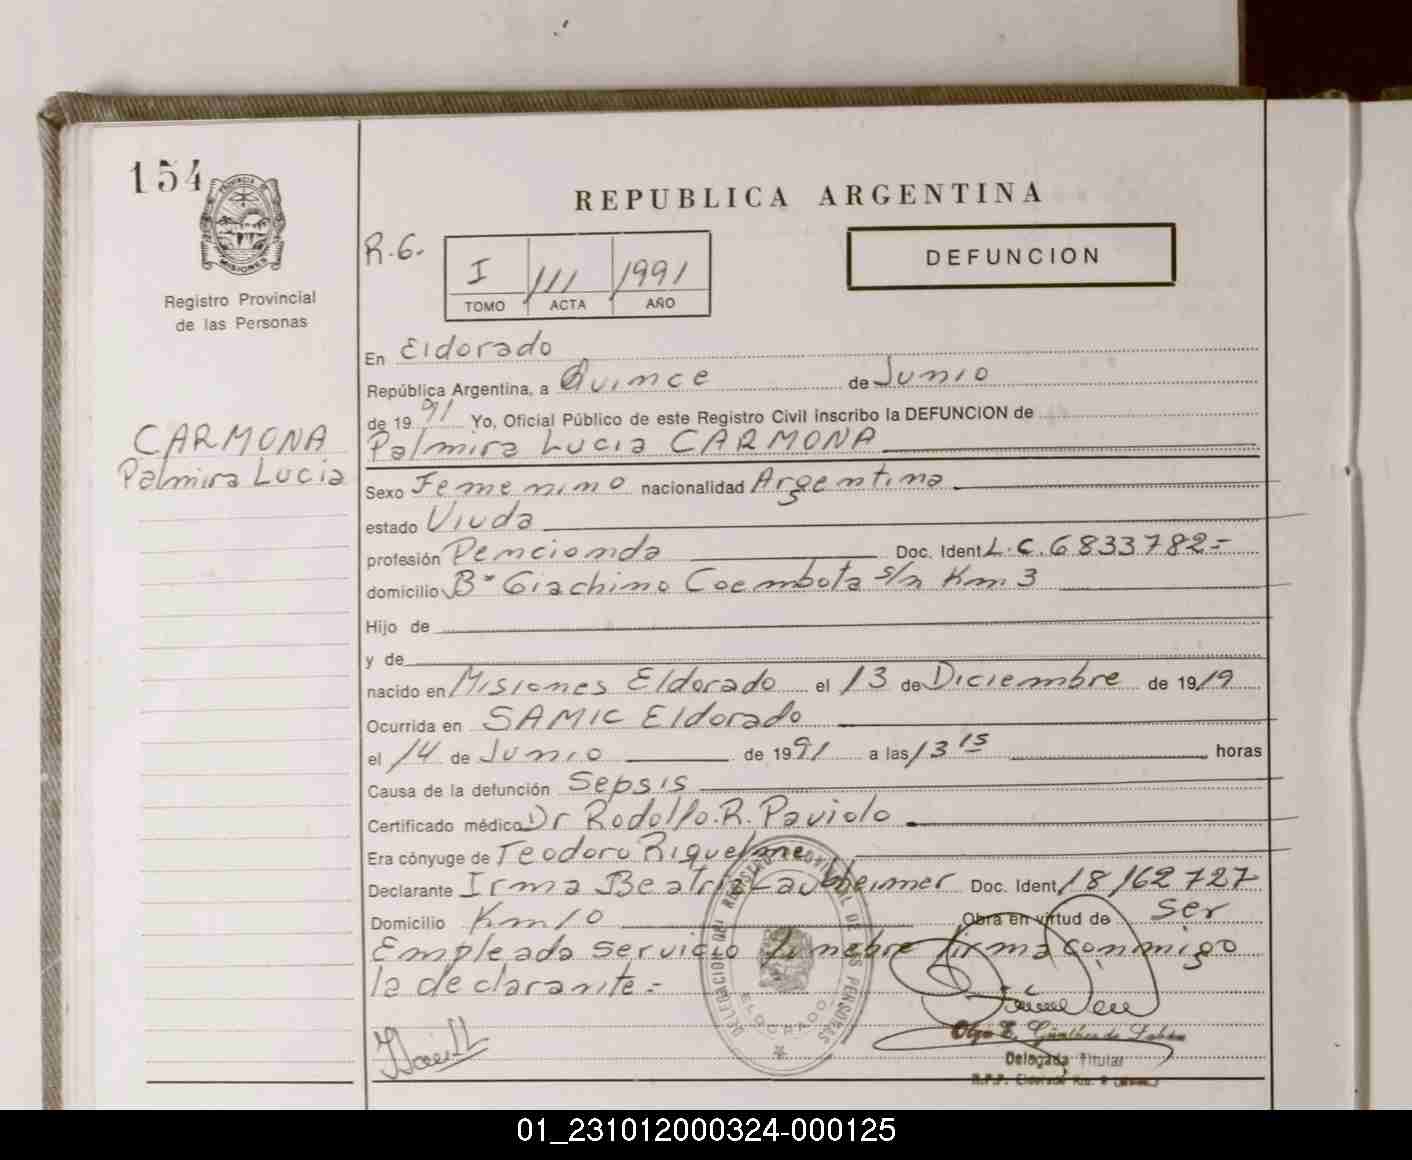 154
PROVINCIA DE
MISIONES
Registro Provincial
de las Personas
CARMONA
Palmira Lucia
REPUBLICA ARGENTINA
R.G.
I 111 1991
TOMO ACTA AÑO
DEFUNCION
En Eldorado
República Argentina, a Quince de Junio
de 1991 Yo, Oficial Público de este Registro Civil inscribo la DEFUNCION de
Palmira Lucia CARMONA
Sexo Femenino nacionalidad Argentina
estado Viuda
profesión Pencionda Doc. Ident L.C. 6833782=
domicilio B° Giachino Coembota s/n Km 3
Hijo de
y de
nacido en Misiones Eldorado el 13 de Diciembre de 1919
Ocurrida en SAMIC Eldorado
el 14 de Junio de 1991 a las 13 15 horas
Causa de la defunción Sepsis
Certificado médico Dr Rodolfo.R.Paviolo
Era cónyuge de Teodoro Riquelme
Declarante Irma Beatriz Lautheimer Doc. Ident 18162727
Domicilio Km 10 Obra en virtud de ser
Empleada servicio funebre firma conmigo
la declarante.=
DELEGACION DEL REGISTRO PROVINCIAL DE LAS PERSONAS
ELDORADO
Olga E. Günther de
Delegada Titular
01_231012000324-000125